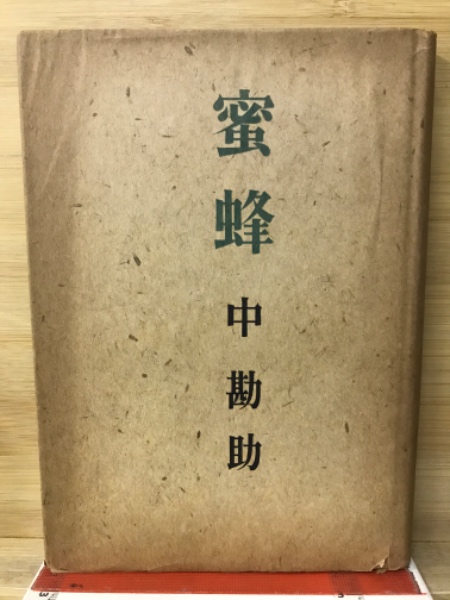 蜜蜂
中勘助